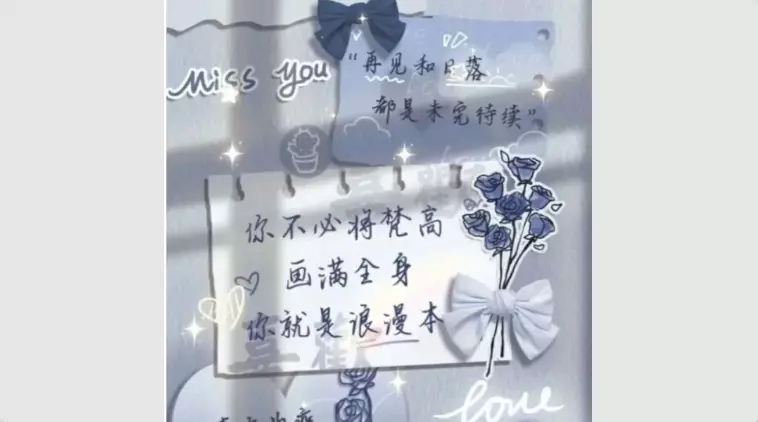 Miss You
“再见和日落
都是未完待续”
你不必将梵高
画满全身
你就是浪漫本
喜歡
Love